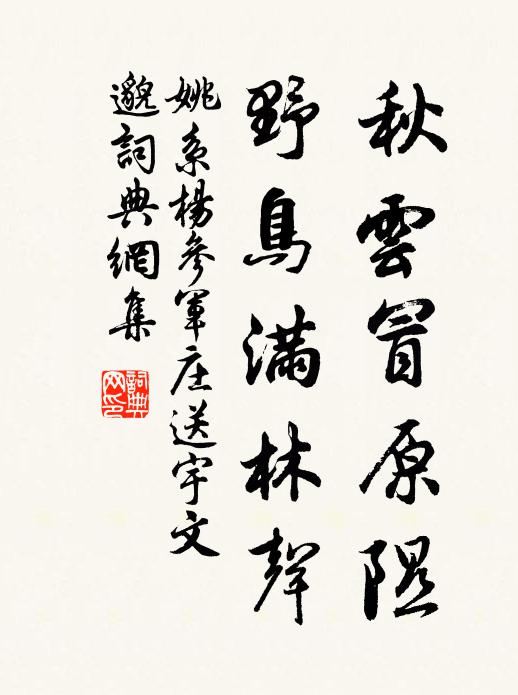 秋雲冒原隰
野鳥滿林聲
姚系楊參軍庄送宇文
邈詞典網集
詞典
网印